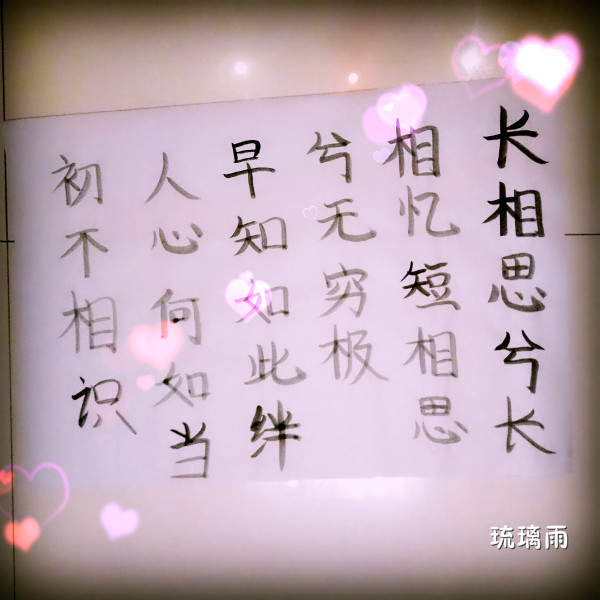 长相思兮长
相忆短相思
兮无穷极
早知如此绊
人心何如当
初不相识
琉璃雨